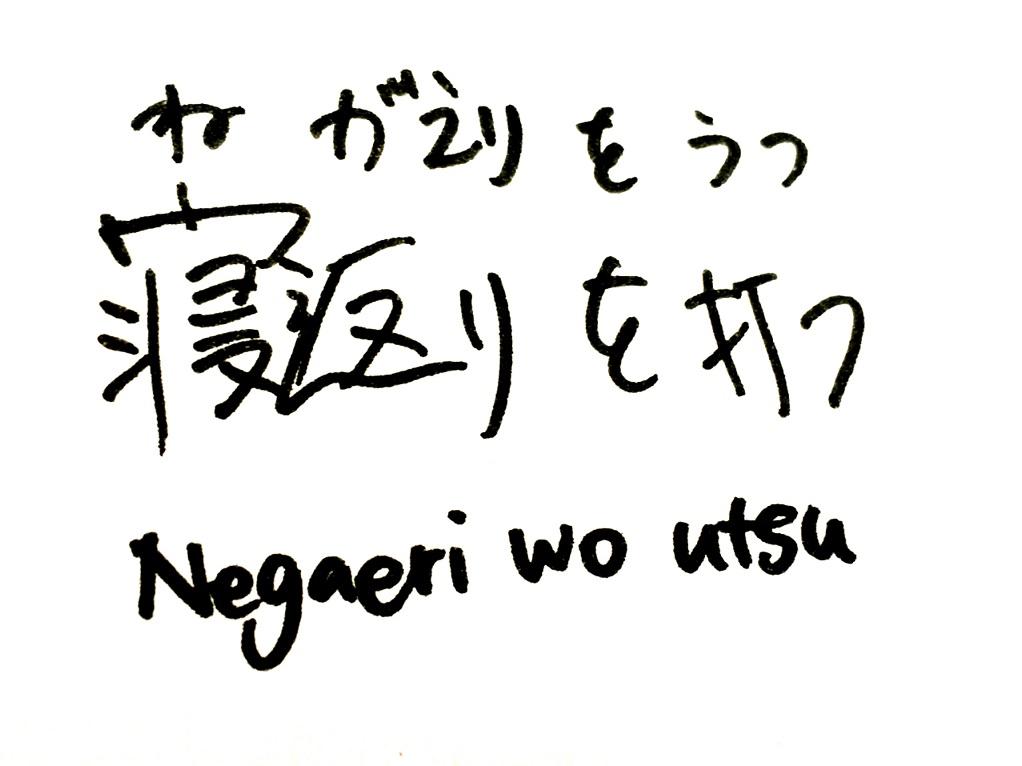 ねがえりをうつ
寝返りを打つ
Negaeri wo utsu